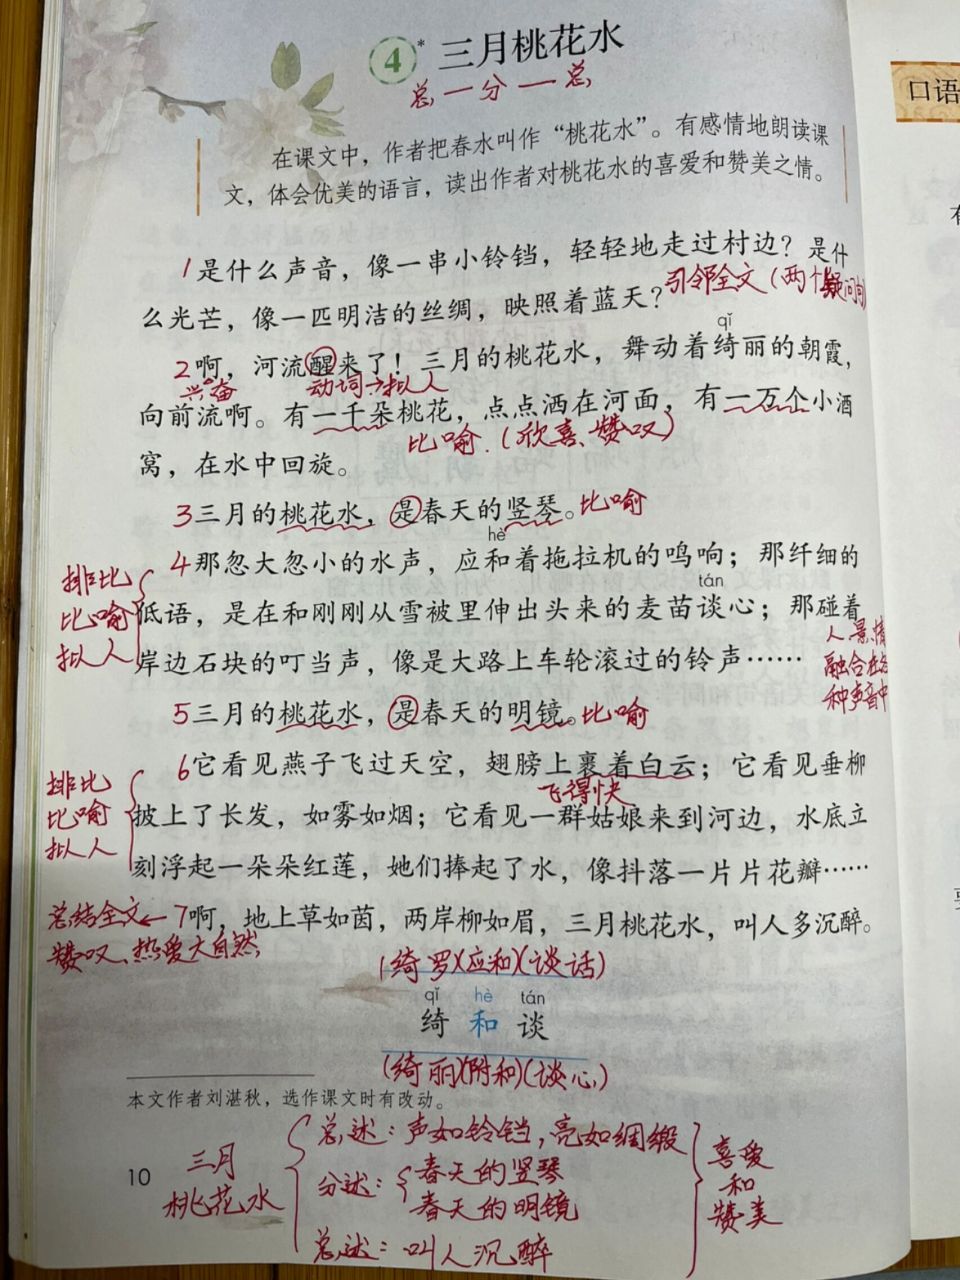 4* 三月桃花水
总一分一总
在课文中，作者把春水叫作“桃花水”。有感情地朗读课
文，体会优美的语言，读出作者对桃花水的喜爱和赞美之情。
口语
1是什么声音，像一串小铃铛，轻轻地走过村边？是什
引邻全文（两个疑问句）
么光芒，像一匹明洁的丝绸，映照着蓝天？
qǐ
2啊，河流醒来了！三月的桃花水，舞动着绮丽的朝霞，
兴奋 动词→拟人
向前流啊。有一千朵桃花，点点洒在河面，有一万个小酒
比喻.（欣喜、赞叹）
窝，在水中回旋。
3三月的桃花水，是春天的竖琴。比喻
hè
4那忽大忽小的水声，应和着拖拉机的鸣响；那纤细的
排比
tán
低语，是在和刚刚从雪被里伸出头来的麦苗谈心；那碰着
比喻
人、景、情
岸边石块的叮当声，像是大路上车轮滚过的铃声……
拟人
融合在
种声音中
5三月的桃花水，是春天的明镜。比喻
6它看见燕子飞过天空，翅膀上裹着白云；它看见垂柳
排比
飞得快
披上了长发，如雾如烟；它看见一群姑娘来到河边，水底立
比喻
刻浮起一朵朵红莲，她们捧起了水，像抖落一片片花瓣……
拟人
总结全文← 7啊，地上草如茵，两岸柳如眉，三月桃花水，叫人多沉醉。
赞叹、热爱大自然
(绮罗)(应和)(谈话)
qǐ hè tán
绮 和 谈
(绮丽)(附和)(谈心)
本文作者刘湛秋，选作课文时有改动。
总述：声如铃铛，亮如绸缎
10
三月
桃花水
分述：春天的竖琴
春天的明镜
总述：叫人沉醉
喜爱
和
赞美